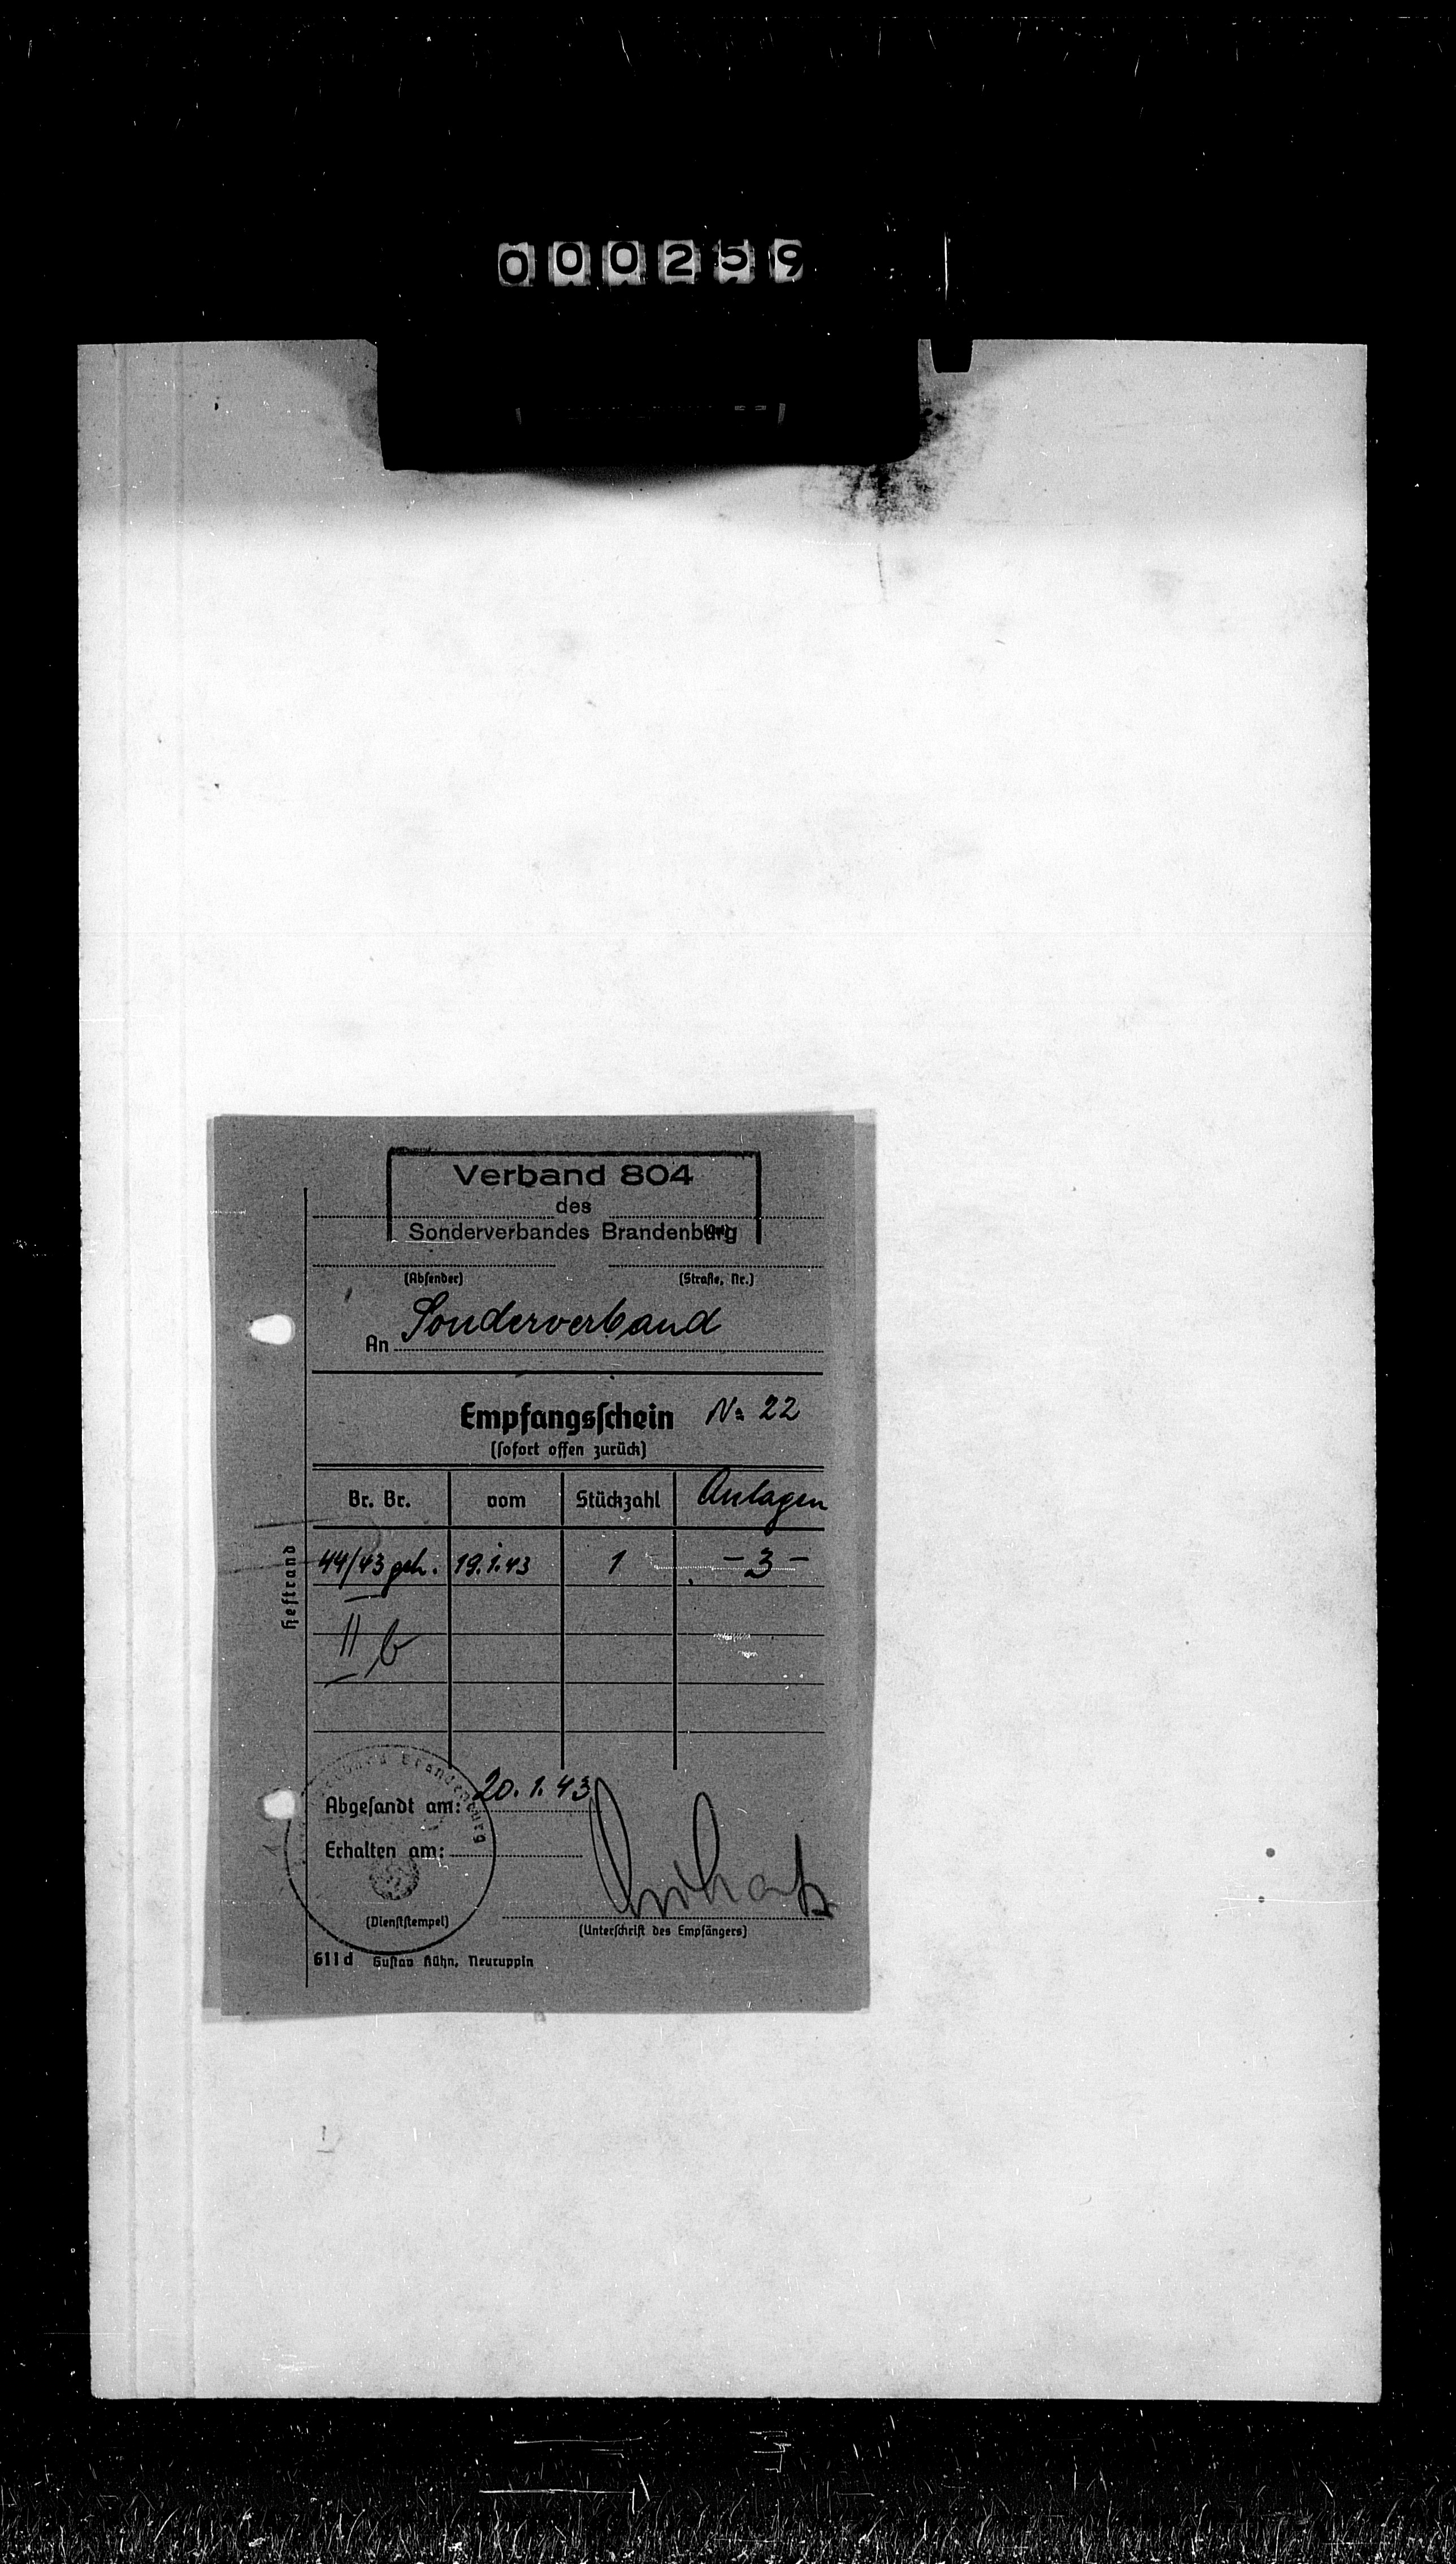 000259
Verband 804
des
Sonderverbandes Brandenburg
(Ort)
(Absender) (Straße, Nr.)
An Sonderverband
Empfangsschein No 22
(sofort offen zurück)
Br. Br. vom Stückzahl Anlagen
44/43 geh. 19.1.43 1 - 3 -
II b
Heftrand
Brandenburg
Abgesandt am: 20.1.43
Erhalten am:
(Dienststempel) (Unterschrift des Empfängers)
611d Gustav Kühn, Neuruppin